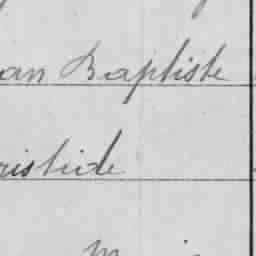 an Baptiste
ristide